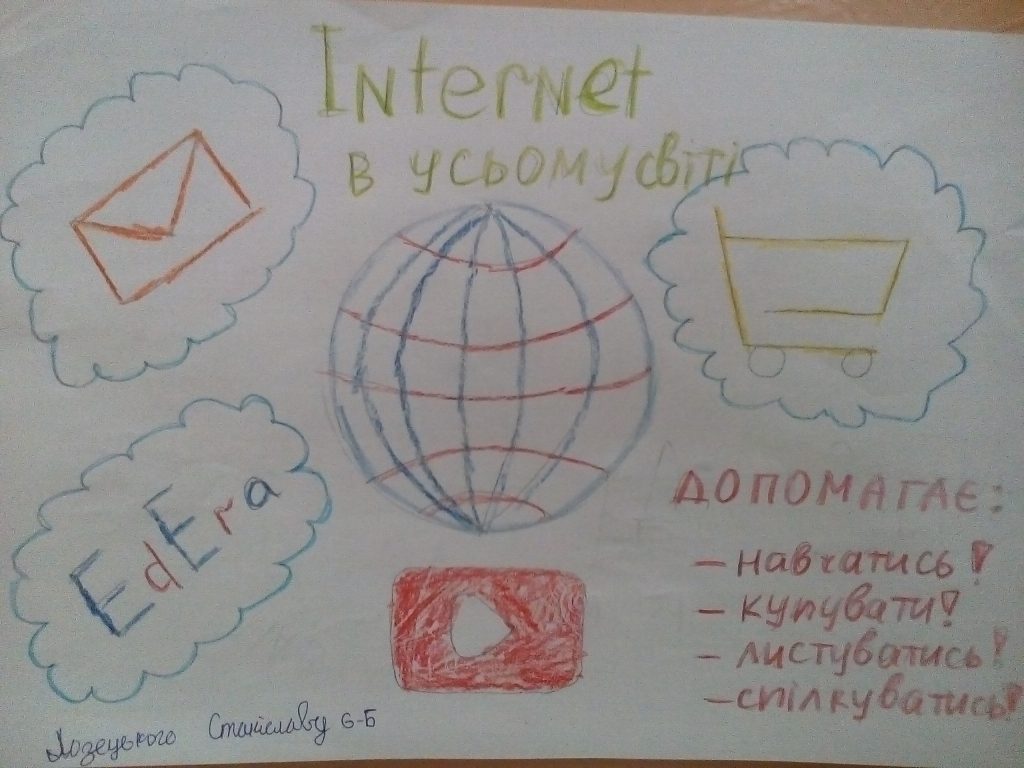 Internet
в усьому світі
EdEra
ДОПОМАГАЄ:
– навчатись!
– купувати!
– листуватись!
– спілкуватись!
Лозецького Станіславу 6-Б